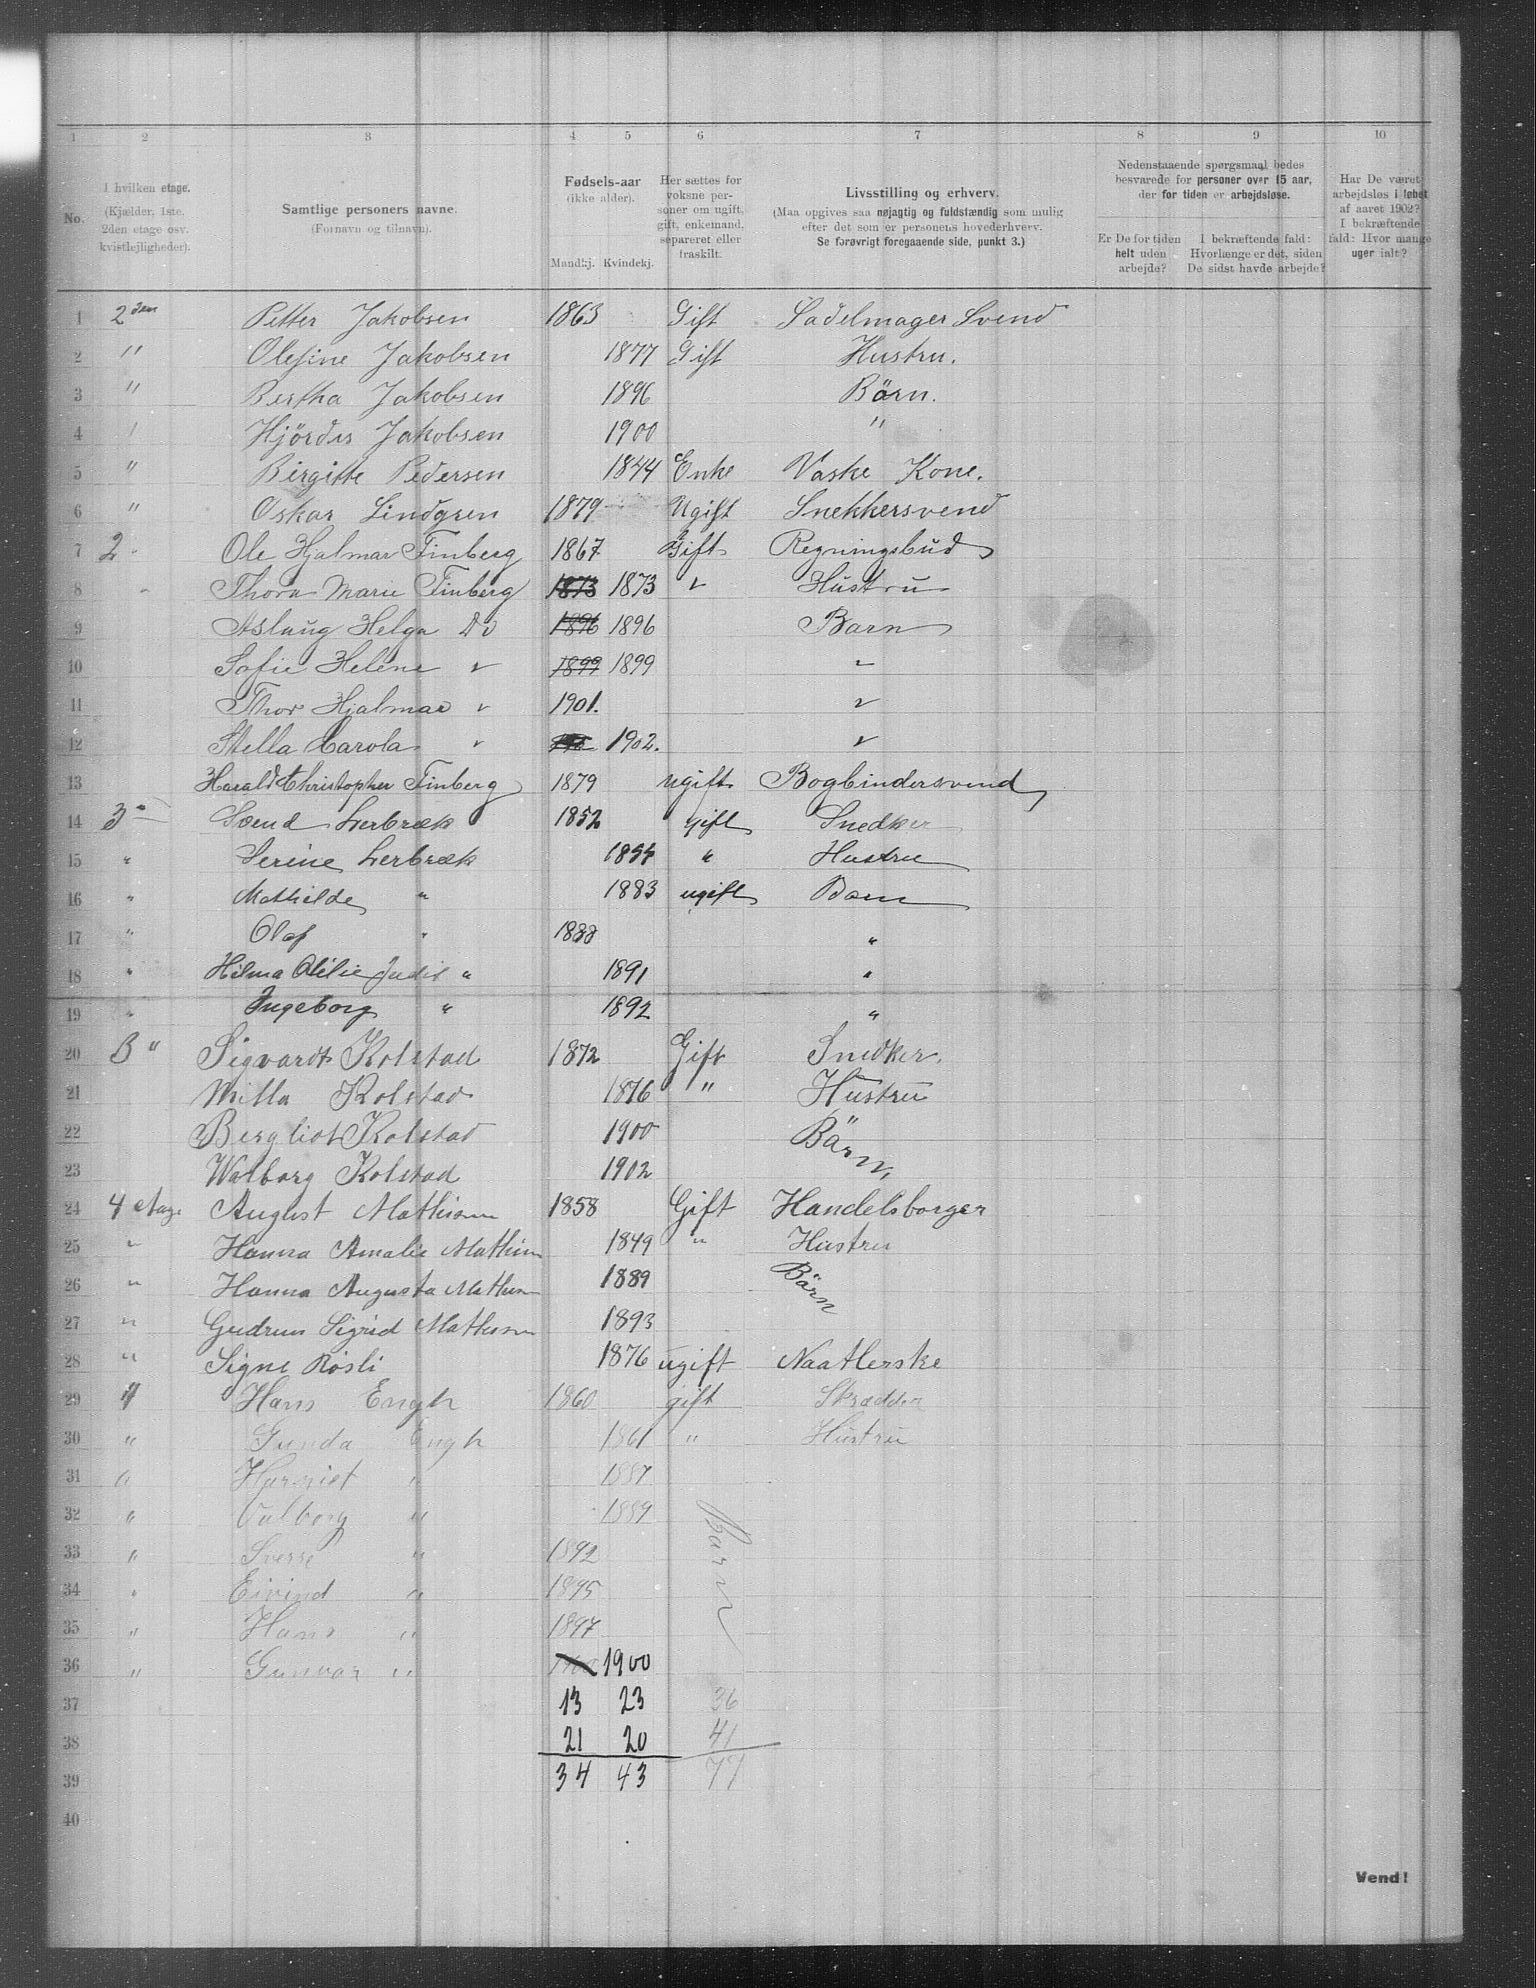 1 2 3 4 5 6 7 8 9 10
No.
I hvilken etage. (Kjælder, 1ste, 2den etage osv. kvistlejligheder).
Samtlige personers navne. (Fornavn og tilnavn).
Fødsels-aar (ikke alder). Mandkj. Kvindekj.
Her sættes for voksne personer om ugift, gift, enkemand, separeret eller fraskilt.
Livsstilling og erhverv. (Maa opgives saa nøjagtig og fuldstændig som mulig efter det som er personens hovederhverv. Se forøvrigt foregaaende side, punkt 3.)
Nedenstaaende spørgsmaal bedes besvarede for personer over 15 aar, der for tiden er arbejdsløse.
Er De for tiden helt uden arbejde?
I bekræftende fald: Hvorlænge er det, siden De sidst havde arbejde?
Har De været arbejdsløs i løbet af aaret 1902? I bekræftende fald: Hvor mange uger ialt?
1 2den Petter Jakobsen 1863 Gift Sadelmager Svend
2 " Olefine Jakobsen 1877 Gift Hustru.
3 " Bertha Jakobsen 1896 Börn.
4 " Hjördis Jakobsen 1900 "
5 " Birgitte Pedersen 1844 Enke Vaske Kone.
6 " Oskar Lindgren 1879 Ugift Snekkersvend
7 2 " Ole Hjalmar Finberg 1867 Gift Regningsbud
8 " Thora Marie Finberg 1873 1873 " Hustru
9 Aslaug Helga Do 1896 1896 Barn
10 Sofie Helene " 1899 1899 "
11 Thor Hjalmar " 1901. "
12 Stella Carola " 1902. "
13 Harald Christopher Finberg 1879 ugift Bogbindersvend
14 3 Svend Lerbræk 1852 gift Snedker
15 " Serine Lerbræk 1854 " Hustru
16 " Mathilde " 1883 ugift Barn
17 " Olaf " 1888 "
18 " Hilma Otilie Judit " 1891 "
19 " Ingeborg " 1892 "
20 3 " Sigvardt Kolstad 1872 Gift Snedker.
21 Milla Kolstad 1876 " Hustru
22 Bergliot Kolstad 1900 Bärn,
23 Walborg Kolstad 1902
24 4 etage August Mathisen 1858 Gift Handelsborger
25 " Hanna Amalie Mathisen 1849 " Hustru
26 " Hanna Augusta Mathisen 1889 Bärn
27 " Gudrun Sigrid Mathisen 1893
28 " Signe Rösli 1876 ugift Naatlerske
29 4 Hans Engh 1860 gift Skrædder
30 " Gunda Engh 1861 " Hustru
31 " Harriet " 1887
32 " Valborg " 1889 Barn
33 " Sverre " 1892
34 " Eivind " 1895
35 " Hans " 1897
36 " Gunvor " 1900 1900
37 13 23 36
38 21 20 41
39 34 43 77
40
Vend!